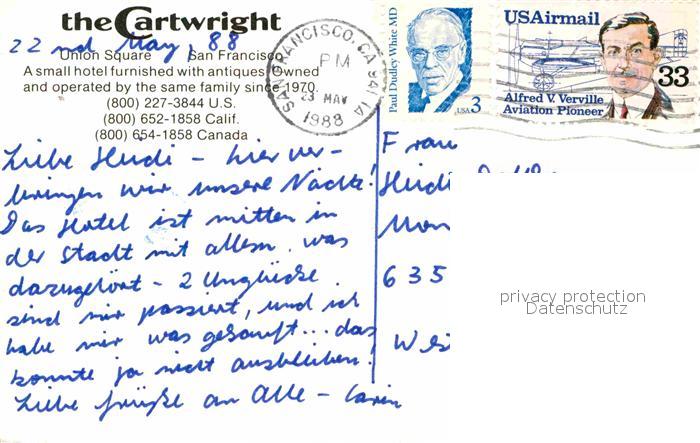 the Cartwright
22nd May, 88
Union Square San Francisco
A small hotel furnished with antiques. Owned
and operated by the same family since 1970.
(800) 227-3844 U.S.
(800) 652-1858 Calif.
(800) 654-1858 Canada
SAN FRANCISCO, CA 941
PM
23 MAY
1988
Paul Dudley White MD
USA 3
USAirmail
33
Alfred V. Verville
Aviation Pioneer
Liebe Heidi – hier ver-
bringen wir unsere Nächte!
Das Hotel ist mitten in
der Stadt mit allem, was
dazugehört – 2 Unglücke
sind mir passiert, und ich
habe mir was gekauft... das
konnte ja nicht ausbleiben!
Liebe Grüße an Alle –
Frau
Heidi
635
privacy protection
Datenschutz